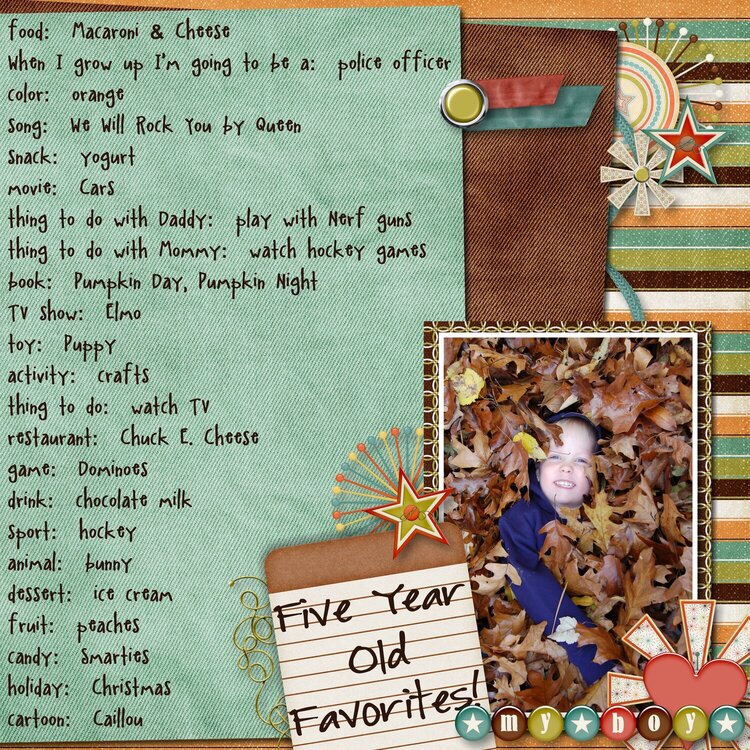 food: Macaroni & Cheese
When I grow up I'm going to be a: police officer
color: orange
song: We Will Rock You by Queen
snack: yogurt
movie: Cars
thing to do with Daddy: play with Nerf guns
thing to do with Mommy: watch hockey games
book: Pumpkin Day, Pumpkin Night
TV show: Elmo
toy: Puppy
activity: crafts
thing to do: watch TV
restaurant: Chuck E. Cheese
game: Dominoes
drink: chocolate milk
sport: hockey
animal: bunny
dessert: ice cream
fruit: peaches
candy: Smarties
holiday: Christmas
cartoon: Caillou
Five Year
Old
Favorites!
my boy